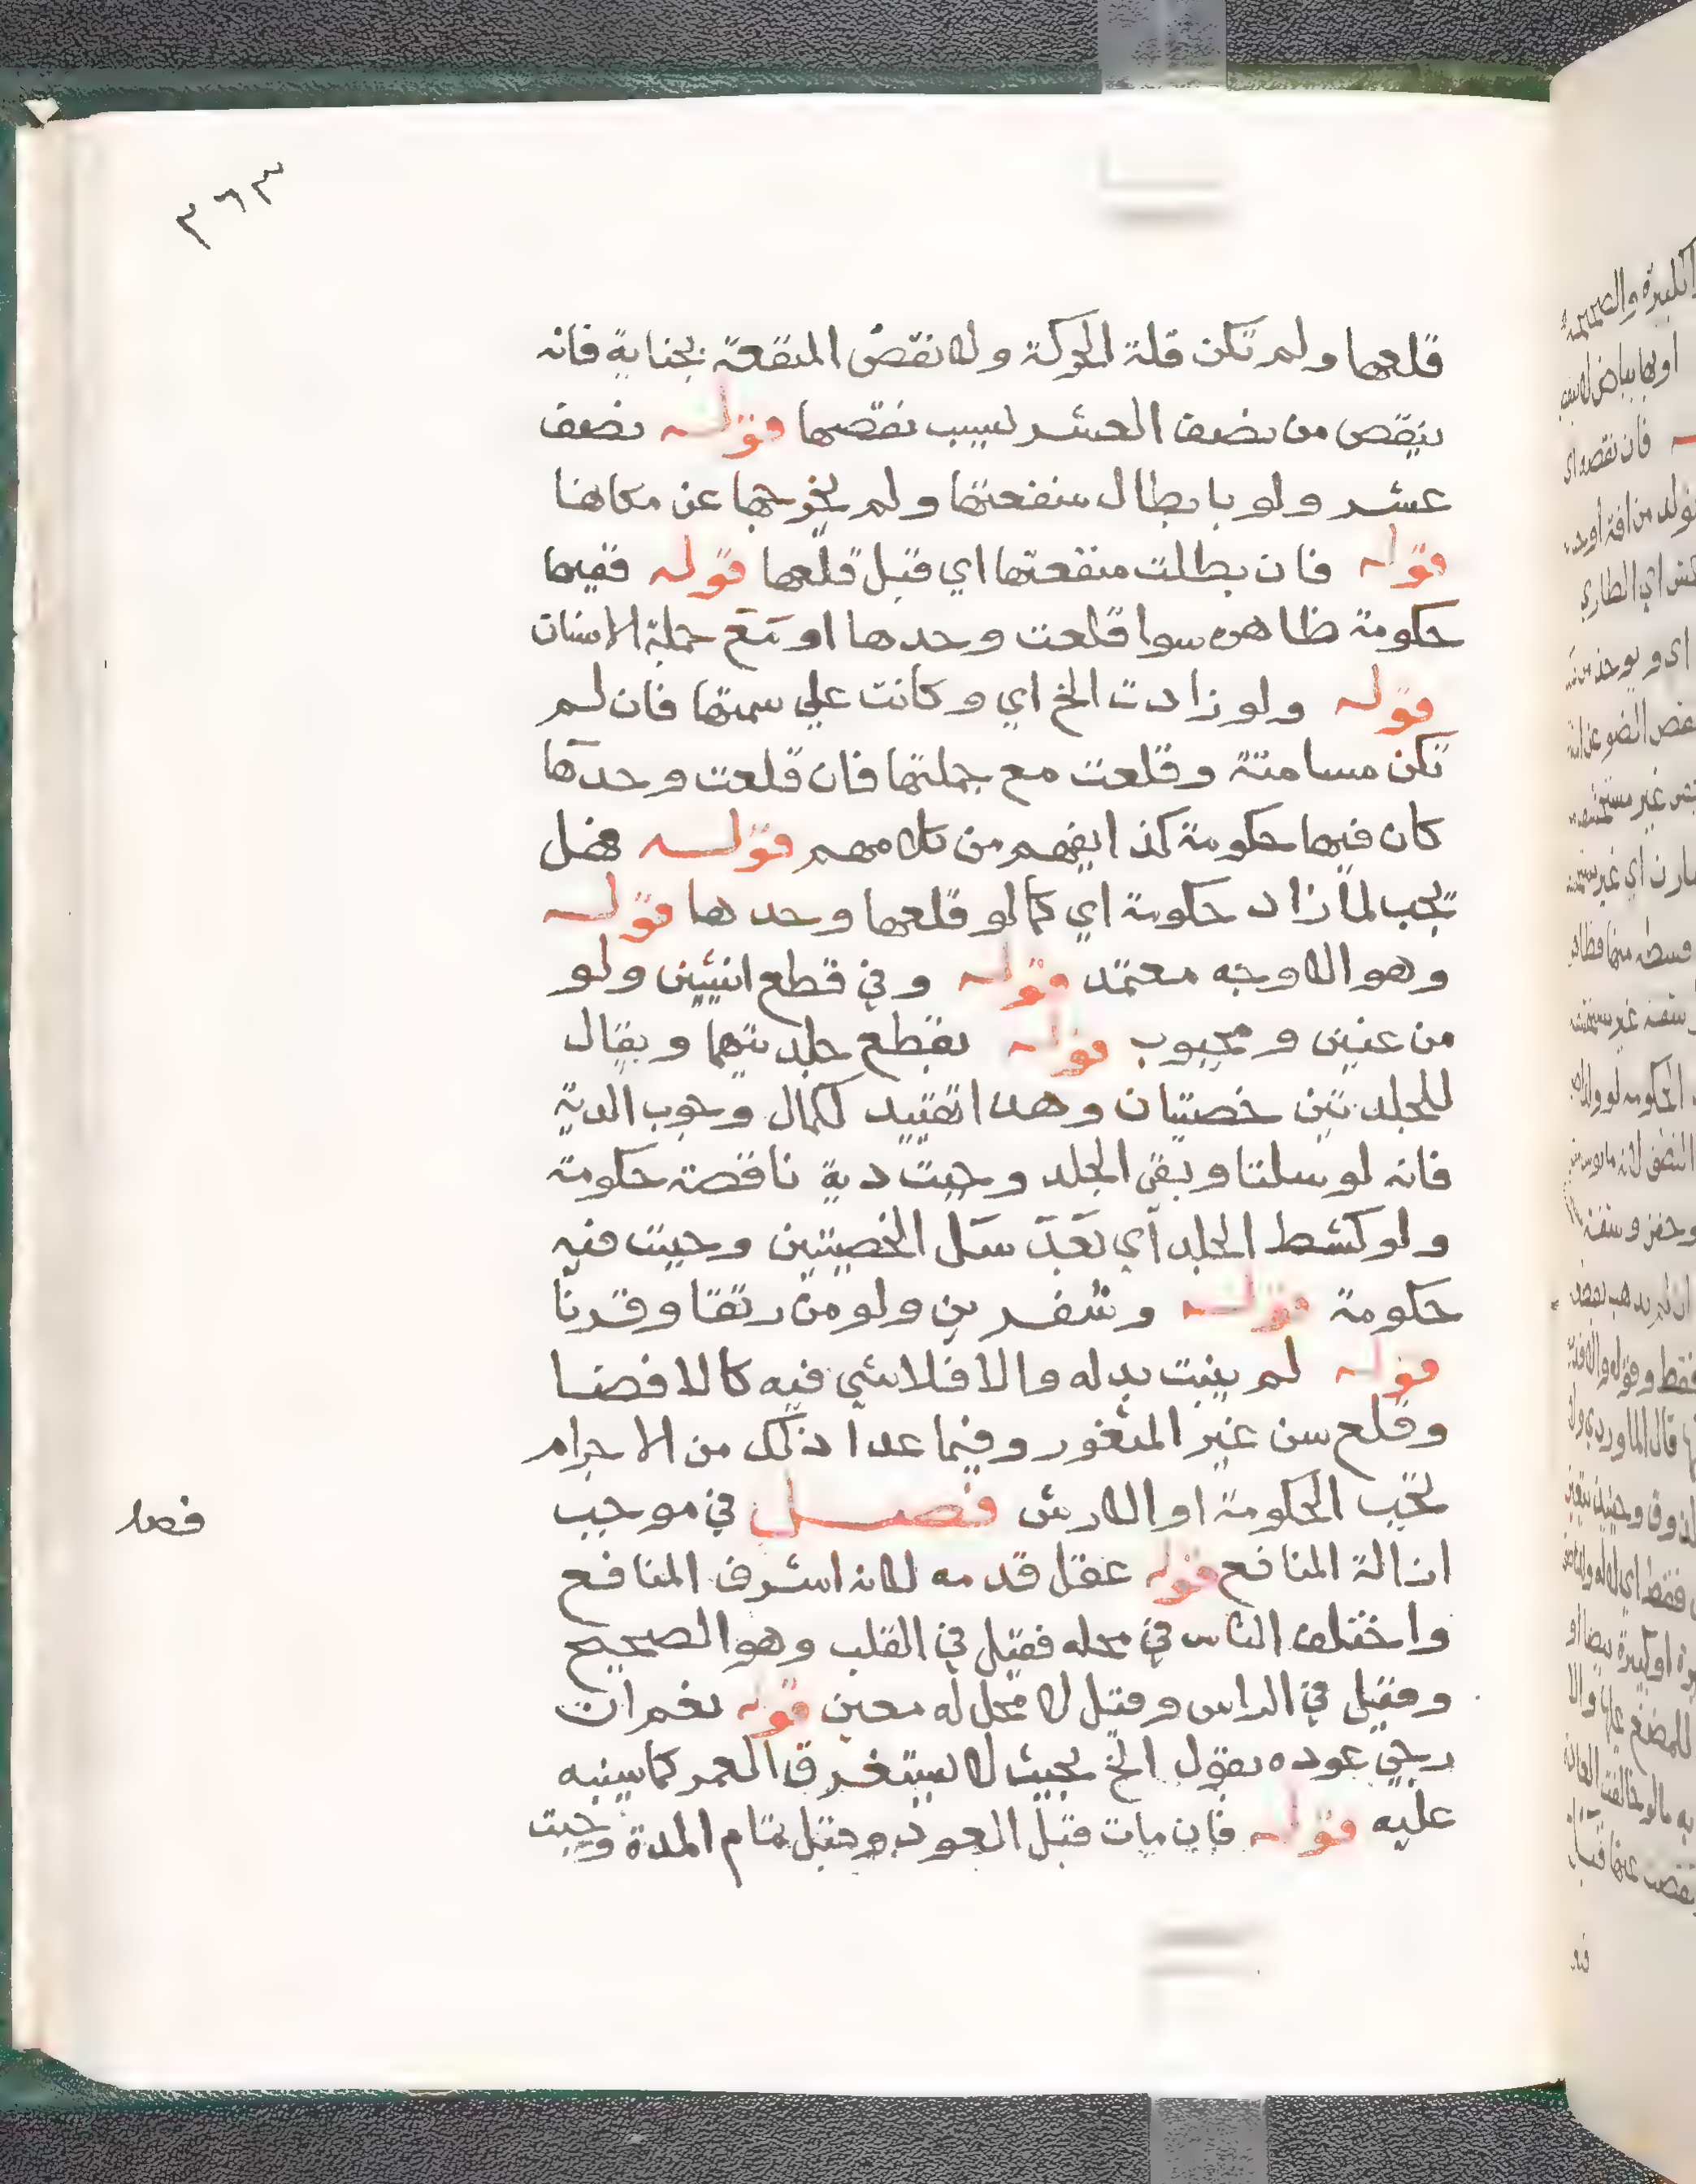 ٣٦٣
قلعها ولم تكن قلة الحركة ولا نقص المنفعة بجناية فانه
ينقص من نصف العشر لسبب نقصها قوله نصف
عشر ولو بابطال منفعتها ولم يخرجها عن مكاهنا
قوله فان بطلت منفعتها اي قبل قلعها قوله ففيها
حكومة ظاهره سوا قلعت وحدها او مع جملة الاسنان
قوله ولو زادت الخ اي وكانت علي سمتها فان لم
تكن مسامتة وقلعت مع جملتها فان قلعت وحدها
كان فيها حكومة كذا يفهم من كلامهم قوله فهل
تجب لما زاد حكومة اي كما لو قلعها وحدها قوله
وهو الاوجه معتمد قوله وفي قطع انثيين ولو
من عنين ومجبوب قوله بقطع جلدتيهما ويقال
للجلدتين خصيتان وهذا تقييد لكمال وجوب الدية
فانه لو سلتا وبقى الجلد وجبت دية ناقصة حكومة
ولو كشط الجلد اي بعد سل الخصيتين وجبت فيه
حكومة قوله وشفرين ولو من رتقا وقرنا
قوله لم ينبت بدله والا فلا شي فيه كالافضا
وقلع سن غير المثغور وفيما عدا ذلك من الاجرام
تجب الحكومة او الارش فصل في موجب
ازالة المنافع قوله عقل قدمه لانه اشرف المنافع
واختلف الناس في محله فقيل في القلب وهو الصحيح
وقيل في الراس وقيل لا محل له معين قوله نعم ان
رجي عوده بقول الخ بحيث لا يستغرق العمر كما سينبه
عليه قوله فان مات قبل العود وقبل تمام المدة وجبت
فصل